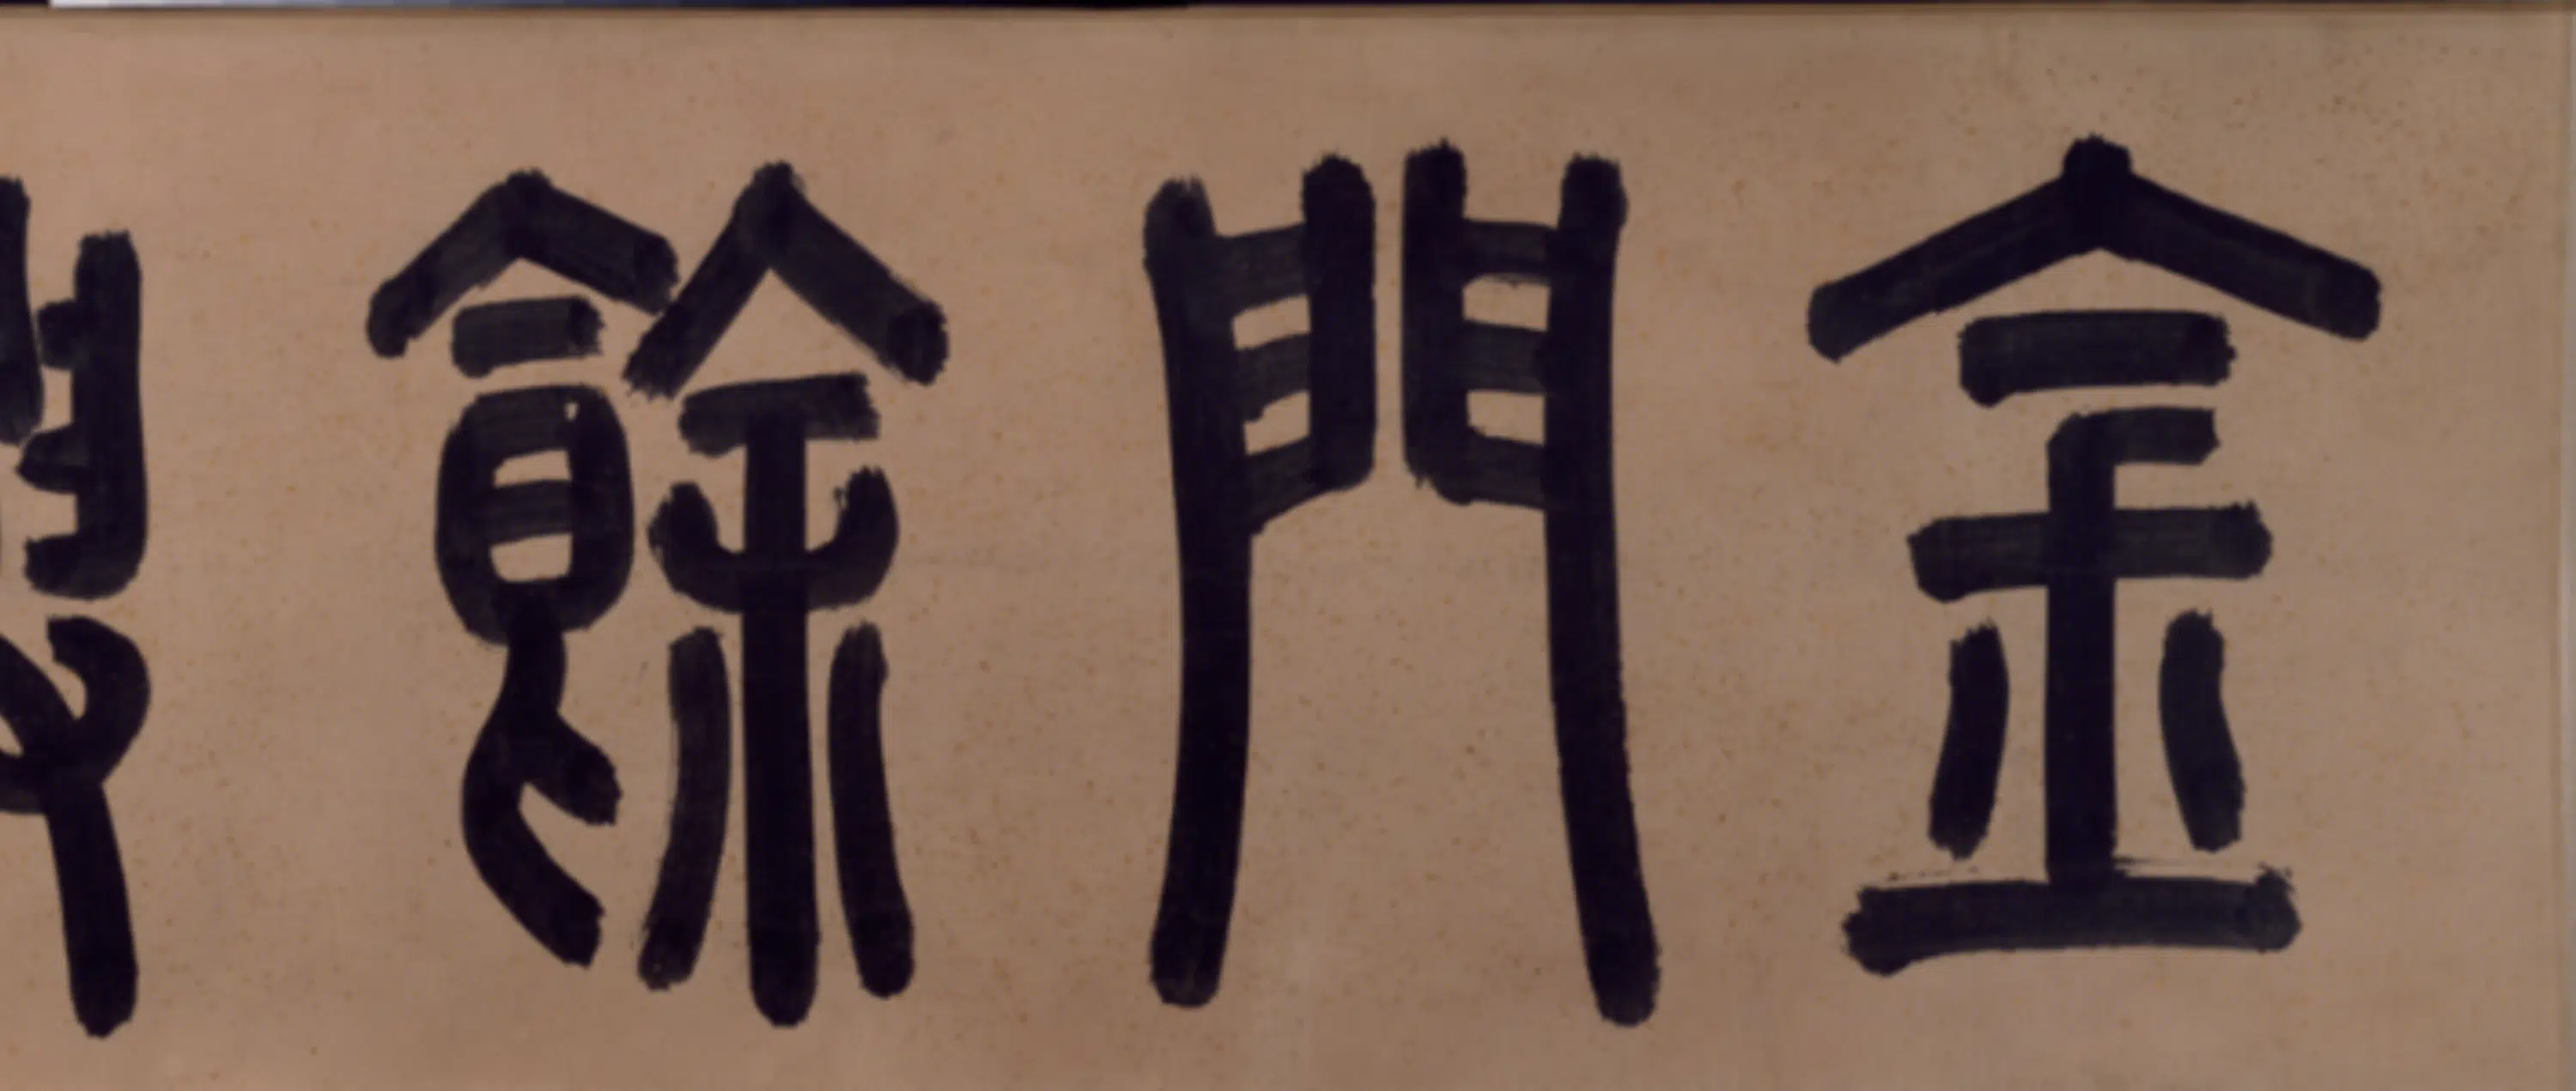 金門餘